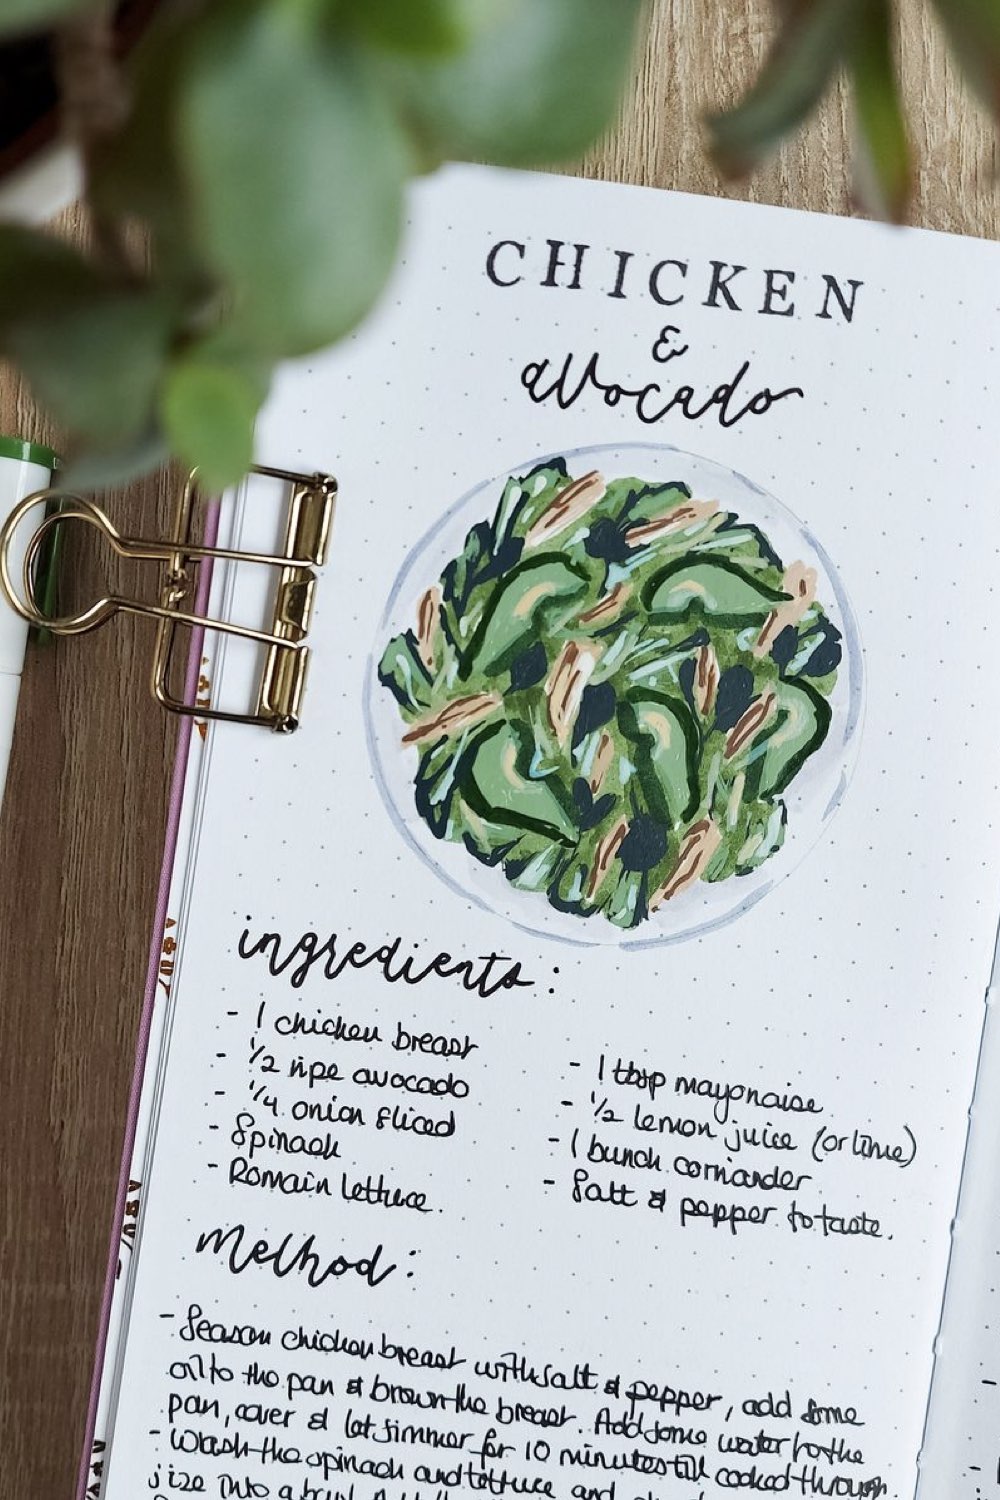 CHICKEN
&
avocado
ingredients:
- 1 chicken breast
- 1/2 ripe avocado
- 1/4 onion sliced
- Spinach
- Romain lettuce.
- 1 tbsp mayonaise
- 1/2 lemon juice (or lime)
- 1 bunch corriander
- Salt & pepper to taste.
Method:
- Season chicken breast with salt & pepper, add some
oil to the pan & brown the breast. Add some water to the
pan, cover & let simmer for 10 minutes till cooked through.
- Wash the spinach and lettuce and
size into a